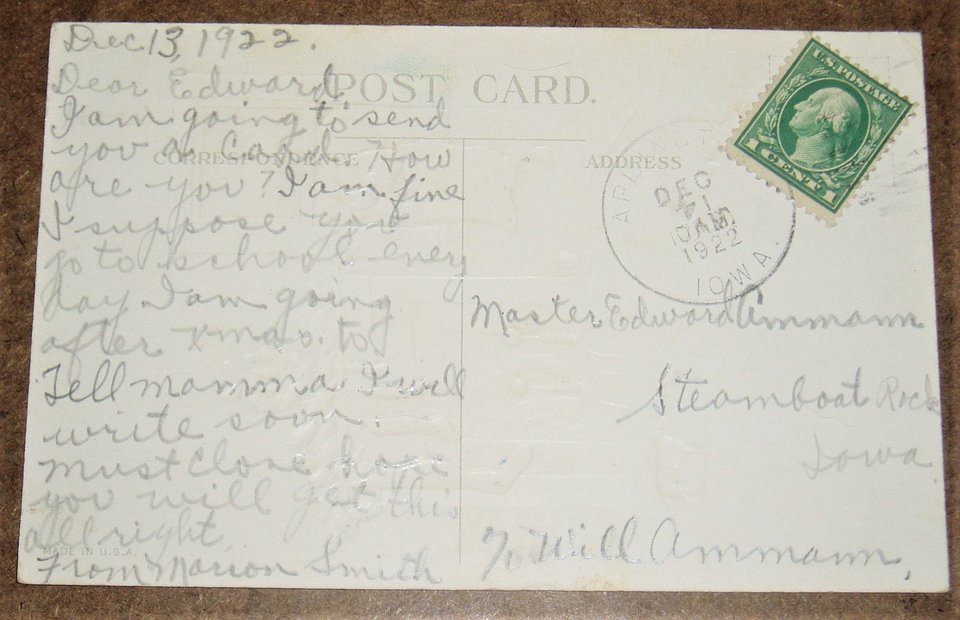 Dec 13, 1922.
Dear Edward,
I am going to send
you a Card. How
are you? I am fine
I suppose you
go to school every
day. I am going
after xmas. to
Tell mamma I will
write soon.
must Close hope
you will get this
all right
From Marion Smith
MADE IN U.S.A.
POST CARD.
CORRESPONDENCE
ADDRESS
U.S. POSTAGE
1 CENT 1
DEC
10 AM
1922
IOWA.
Master Edward Ammann
Steamboat Rock
Iowa
c/o Will Ammann,